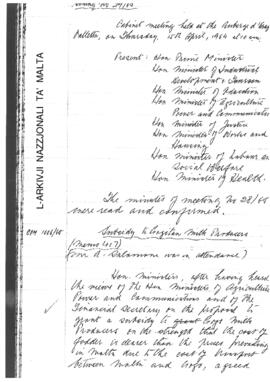 Cabinet meeting held at the Auberge d'Aragon
Valletta, on Thursday, 15th April, 1965 at 10 a.m.
Present: Hon Prime Minister
Hon Minister of Industrial
Development & Tourism
Hon Minister of Education
Hon Minister of Agriculture
Power and Communications
Hon Minister of Justice
Hon Minister of Works and
Housing
Hon Minister of Labour and
Social Welfare
Hon Minister of Health.
L-ARKIVJI NAZZJONALI TA' MALTA
The minutes of meeting No 28/65
were read and confirmed.
Subsidy to Gozitan Milk Producers
(Mr A. Salamone was in attendance)
Hon. Ministers, after having heard
the views of the Hon Minister of Agriculture
Power and Communications and of the
Financial Secretary on the proposal to
grant a subsidy to Gozo Milk
Producers on the strength that the cost of
fodder is dearer than the prices prevailing
in Malta due to the cost of transport
between Malta and Gozo, agreed